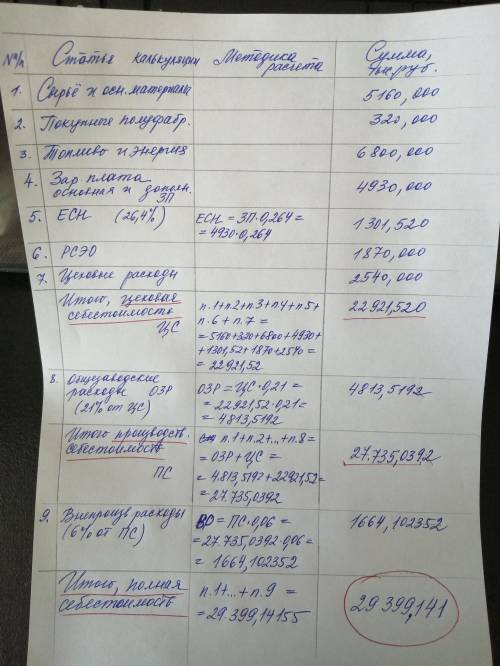 №п/п Статья калькуляции Методика расчета Сумма, тыс.руб.
1. Сырьё и осн. материалы 5160,000
2. Покупные полуфабр. 320,000
3. Топливо и энергия 6800,000
4. Зар. плата
основная и дополн. 4930,000
ЗП
5. ЕСН (26,4%) ЕСН = ЗП·0,264 = 1301,520
= 4930·0,264
6. РСЭО 1870,000
7. Цеховые расходы 2540,000
Итого, цеховая п.1+п2+п3+п.4+п.5+ 22921,520
себестоимость п.6 + п.7 =
ЦС = 5160+320+6800+4930+
+1301,52+1870+2540=
= 22921,52
8. Общезаводские ОЗР = ЦС·0,21 = 4813,5192
расходы ОЗР = 22921,52·0,21=
(21% от ЦС) = 4813,5192
Итого производств. п.1+п.2+...+п.8 =
себестоимость = ОЗР + ЦС = 27.735,0392
ПС = 4.813,5192+22921,52=
= 27.735,0392
9. Внепроизв расходы ВО = ПС·0,06 = 1664,102352
(6% от ПС) = 27.735,0392·0,06=
= 1664,102352
Итого, полная п.1+...+п.9 = 29399,141
себестоимость = 29399,14155